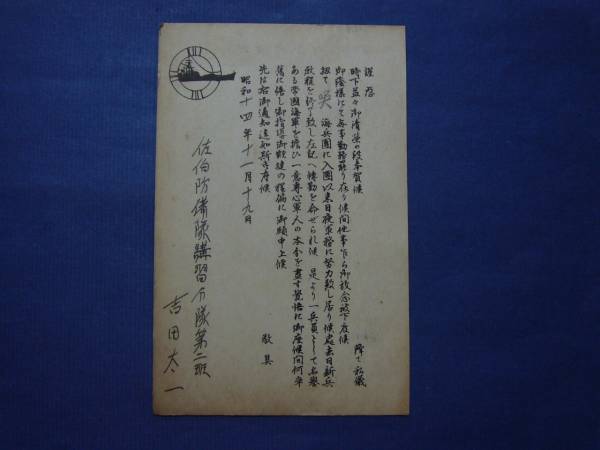 謹啓
時下益々御清栄の段奉賀候 降て私儀
御蔭様にて無事勤務罷り在り候間他事乍ら御放念被下度候
扨て 呉 海兵團に入團以来日夜軍務に努力致し居り候處去日新兵
教程を終了致し左記へ轉勤を命ぜられ候 是より一兵員として名誉
ある帝國海軍を擔ひ一意専心軍人の本分を盡す覚悟に御座候間何卒
舊に倍し御指導御鞭撻の程偏に御願申上候
先は右御通知迄如斯に御座候 敬具
昭和十四年十一月十九日
佐伯防備隊講習分隊第二班
吉田太一